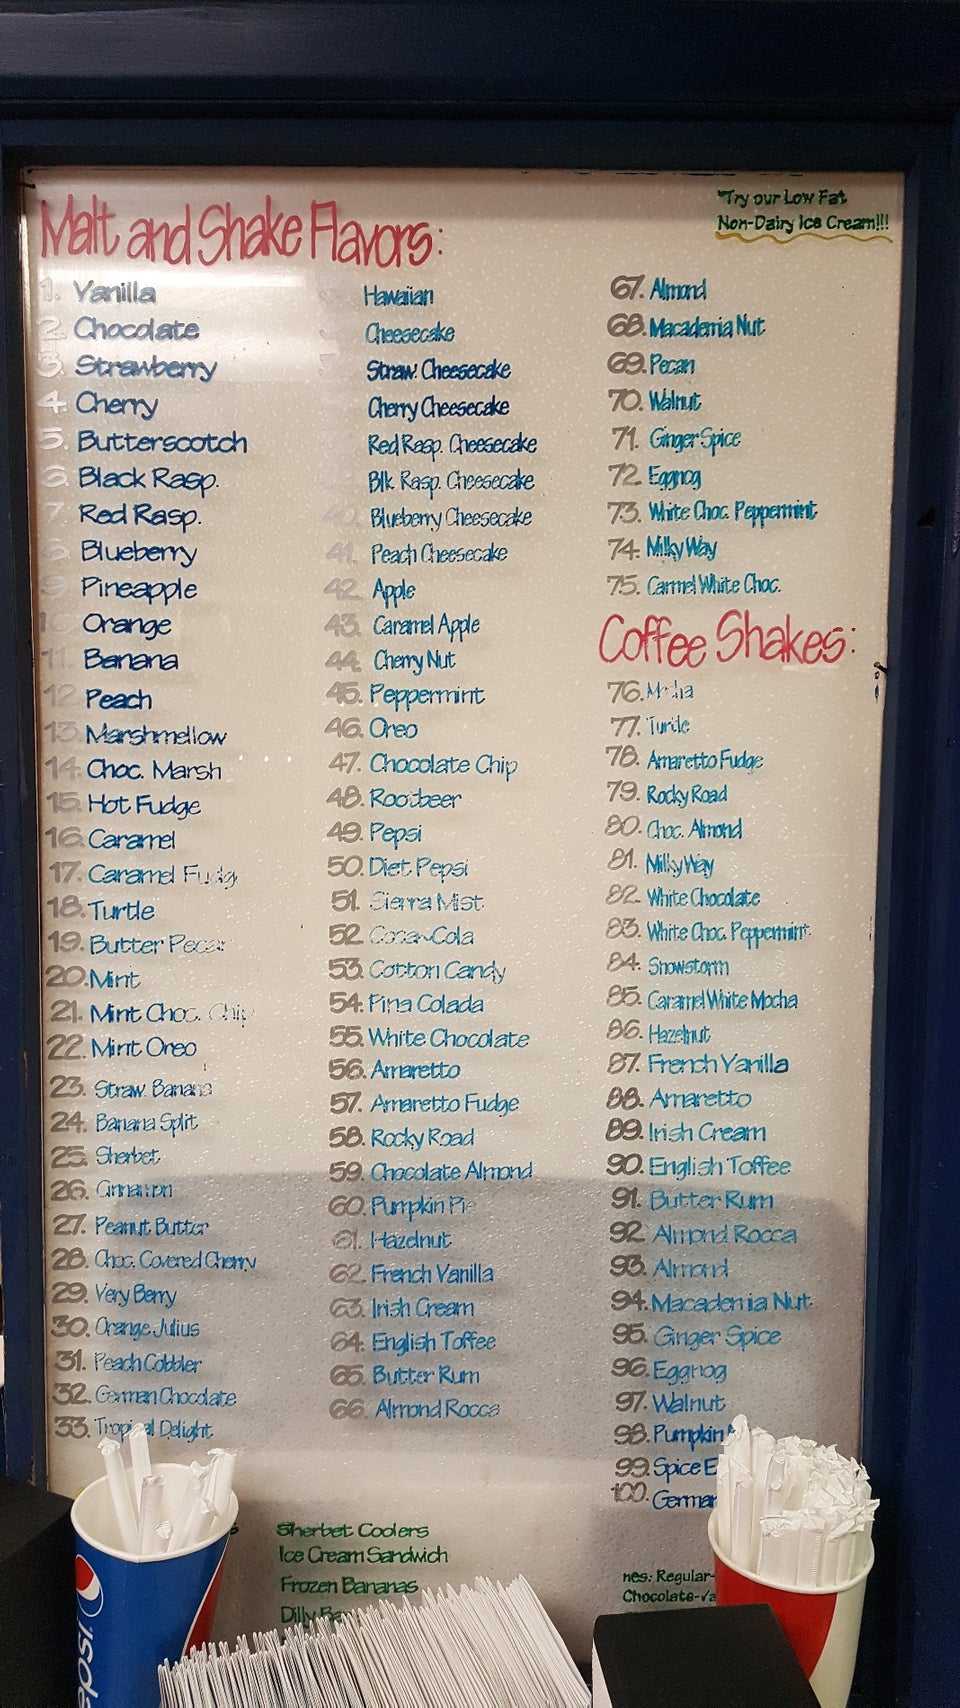 Malt and Shake Flavors:
"Try our Low Fat
Non-Dairy Ice Cream!!!
1. Vanilla
2. Chocolate
3. Strawberry
4. Cherry
5. Butterscotch
6. Black Rasp.
7. Red Rasp.
8. Blueberry
9. Pineapple
10. Orange
11. Banana
12. Peach
13. Marshmellow
14. Choc. Marsh
15. Hot Fudge
16. Caramel
17. Caramel Fudge
18. Turtle
19. Butter Pecan
20. Mint
21. Mint Choc. Chip
22. Mint Oreo
23. Straw. Banana
24. Banana Split
25. Sherbet
26. Cinnamon
27. Peanut Butter
28. Choc. Covered Cherry
29. Very Berry
30. Orange Julius
31. Peach Cobbler
32. German Chocolate
33. Tropical Delight
Hawaiian
Cheesecake
Straw. Cheesecake
Cherry Cheesecake
Red Rasp. Cheesecake
Blk. Rasp. Cheesecake
40. Blueberry Cheesecake
41. Peach Cheesecake
42. Apple
43. Caramel Apple
44. Cherry Nut
45. Peppermint
46. Oreo
47. Chocolate Chip
48. Rootbeer
49. Pepsi
50. Diet Pepsi
51. Sierra Mist
52. Coca-Cola
53. Cotton Candy
54. Pina Colada
55. White Chocolate
56. Amaretto
57. Amaretto Fudge
58. Rocky Road
59. Chocolate Almond
60. Pumpkin Pie
61. Hazelnut
62. French Vanilla
63. Irish Cream
64. English Toffee
65. Butter Rum
66. Almond Rocca
67. Almond
68. Macadamia Nut
69. Pecan
70. Walnut
71. Ginger Spice
72. Eggnog
73. White Choc. Peppermint
74. Milky Way
75. Carmel White Choc.
Coffee Shakes:
76. Mocha
77. Turtle
78. Amaretto Fudge
79. Rocky Road
80. Choc. Almond
81. Milky Way
82. White Chocolate
83. White Choc. Peppermint
84. Snowstorm
85. Caramel White Mocha
86. Hazelnut
87. French Vanilla
88. Amaretto
89. Irish Cream
90. English Toffee
91. Butter Rum
92. Almond Rocca
93. Almond
94. Macadamia Nut
95. Ginger Spice
96. Eggnog
97. Walnut
98. Pumpkin
99. Spice
100. German
Sherbet Coolers
Ice Cream Sandwich
Frozen Bananas
Dilly
nes: Regular-
Chocolate-
pepsi